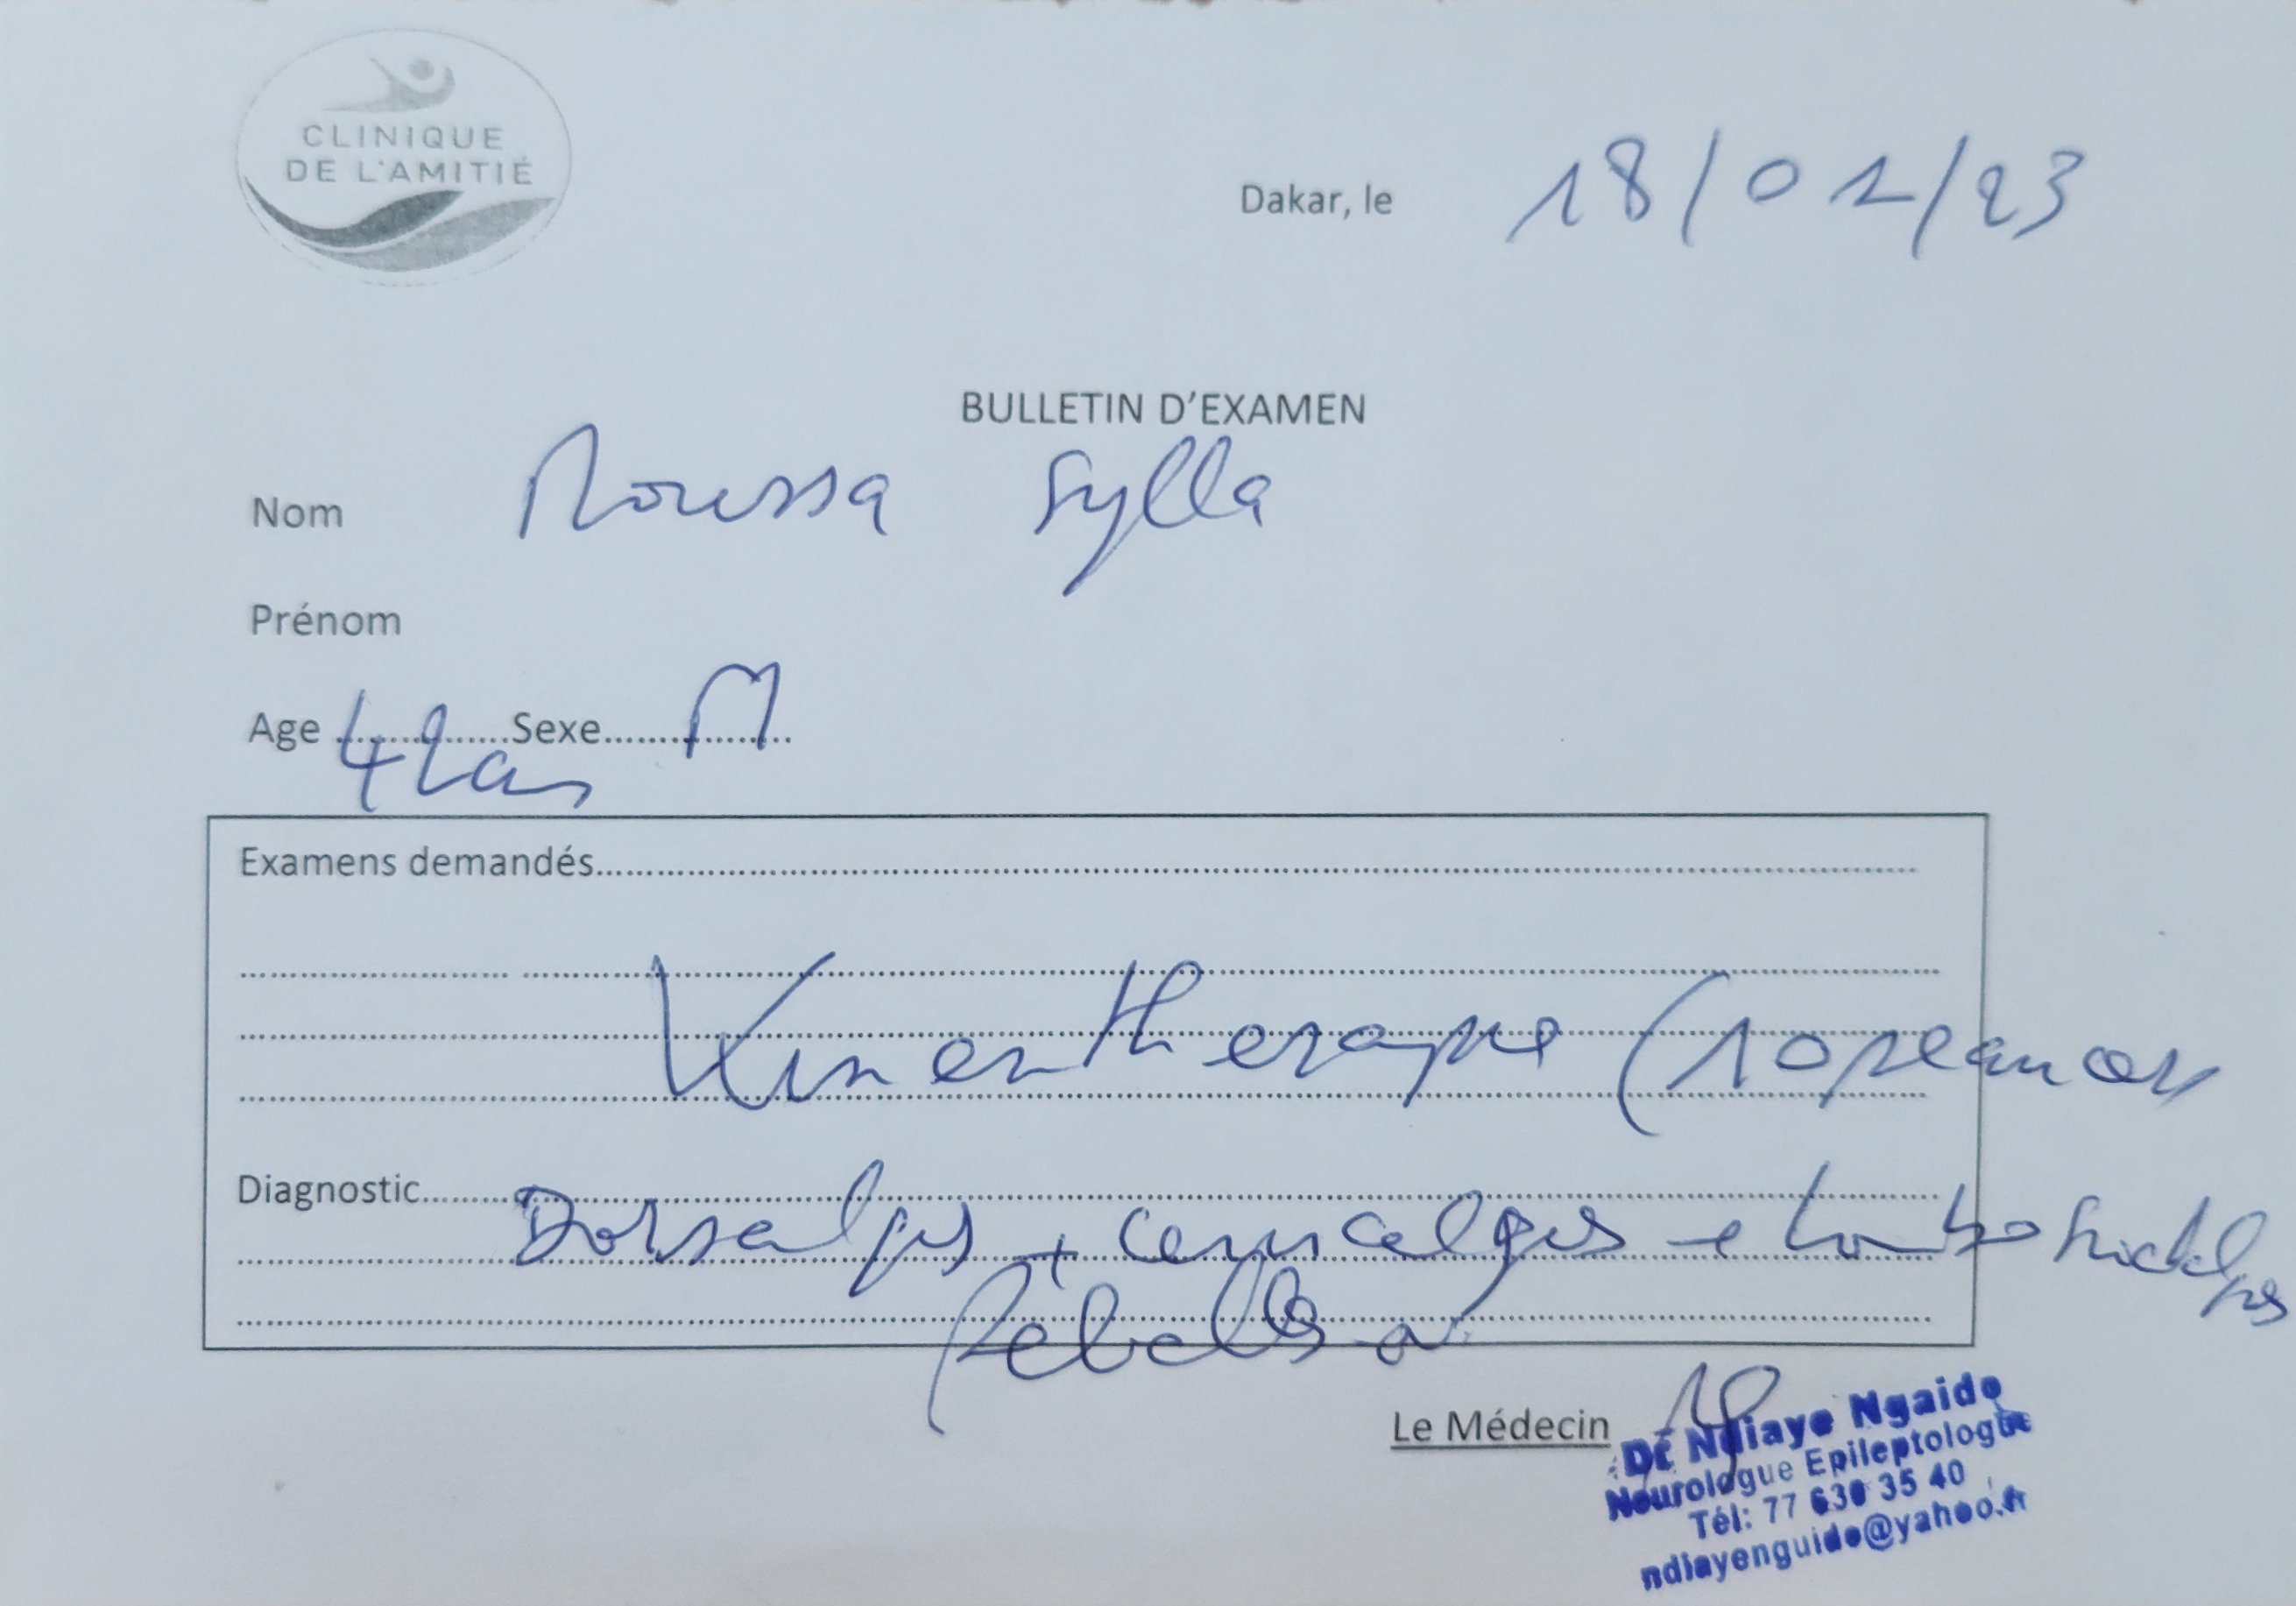 CLINIQUE
DE L'AMITIÉ
Dakar, le 18/01/23
BULLETIN D'EXAMEN
Nom Moussa Sylla
Prénom
Age 42ans Sexe M
Examens demandés
Kinesitherapie (10 seances
Diagnostic Dorsalgies + cervicalgies
rebelles
Le Médecin
Dr Ndiaye Ngaido
Neurologue Epileptologue
Tél: 77 630 35 40
ndiayenguido@yahoo.fr